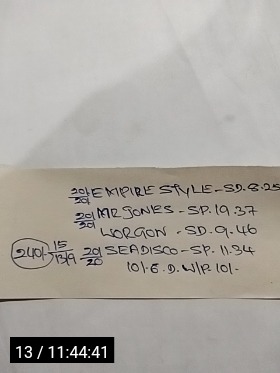 20/- EMPIRE STYLE - SD. 8.25
20/-
20/- MR JONES - SP. 19.37
20/-
WORGON - SD. 9.46
240/- 15 20/- SEADISCO - SP. 11.34
13/9 20/-
10/- E.D. W/P. 10/-
13 / 11:44:41